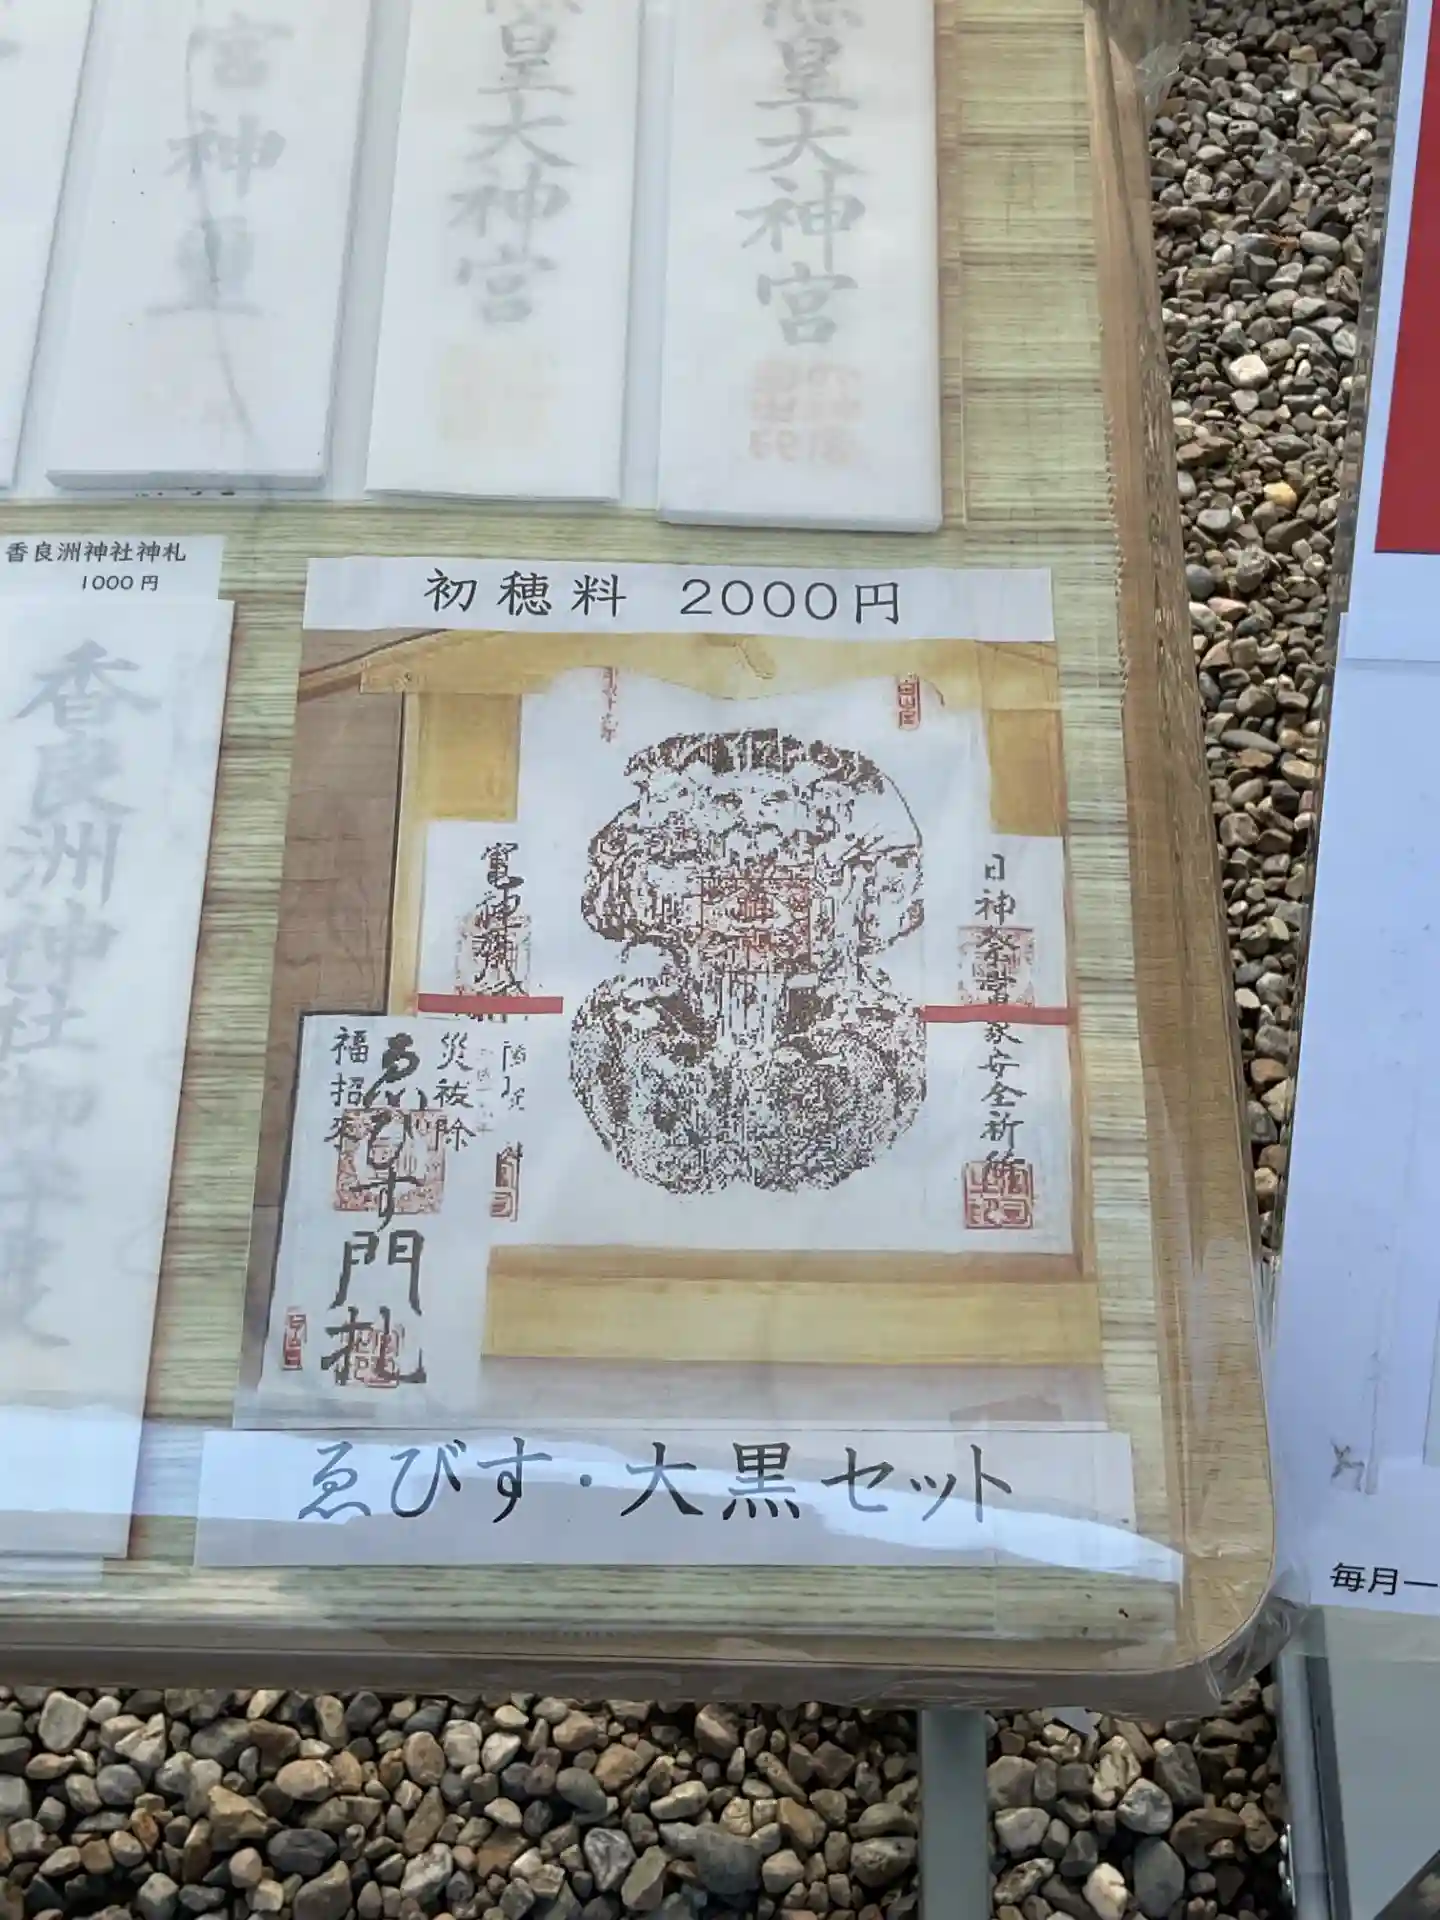 宮神璽
皇大神宮
皇大神宮
香良洲神社神札
1000円
香良洲神社御
初穂料 2000円
日神
家安全祈
竃神
災祓除
ゑびす門札
福招来
ゑびす・大黒セット
毎月一